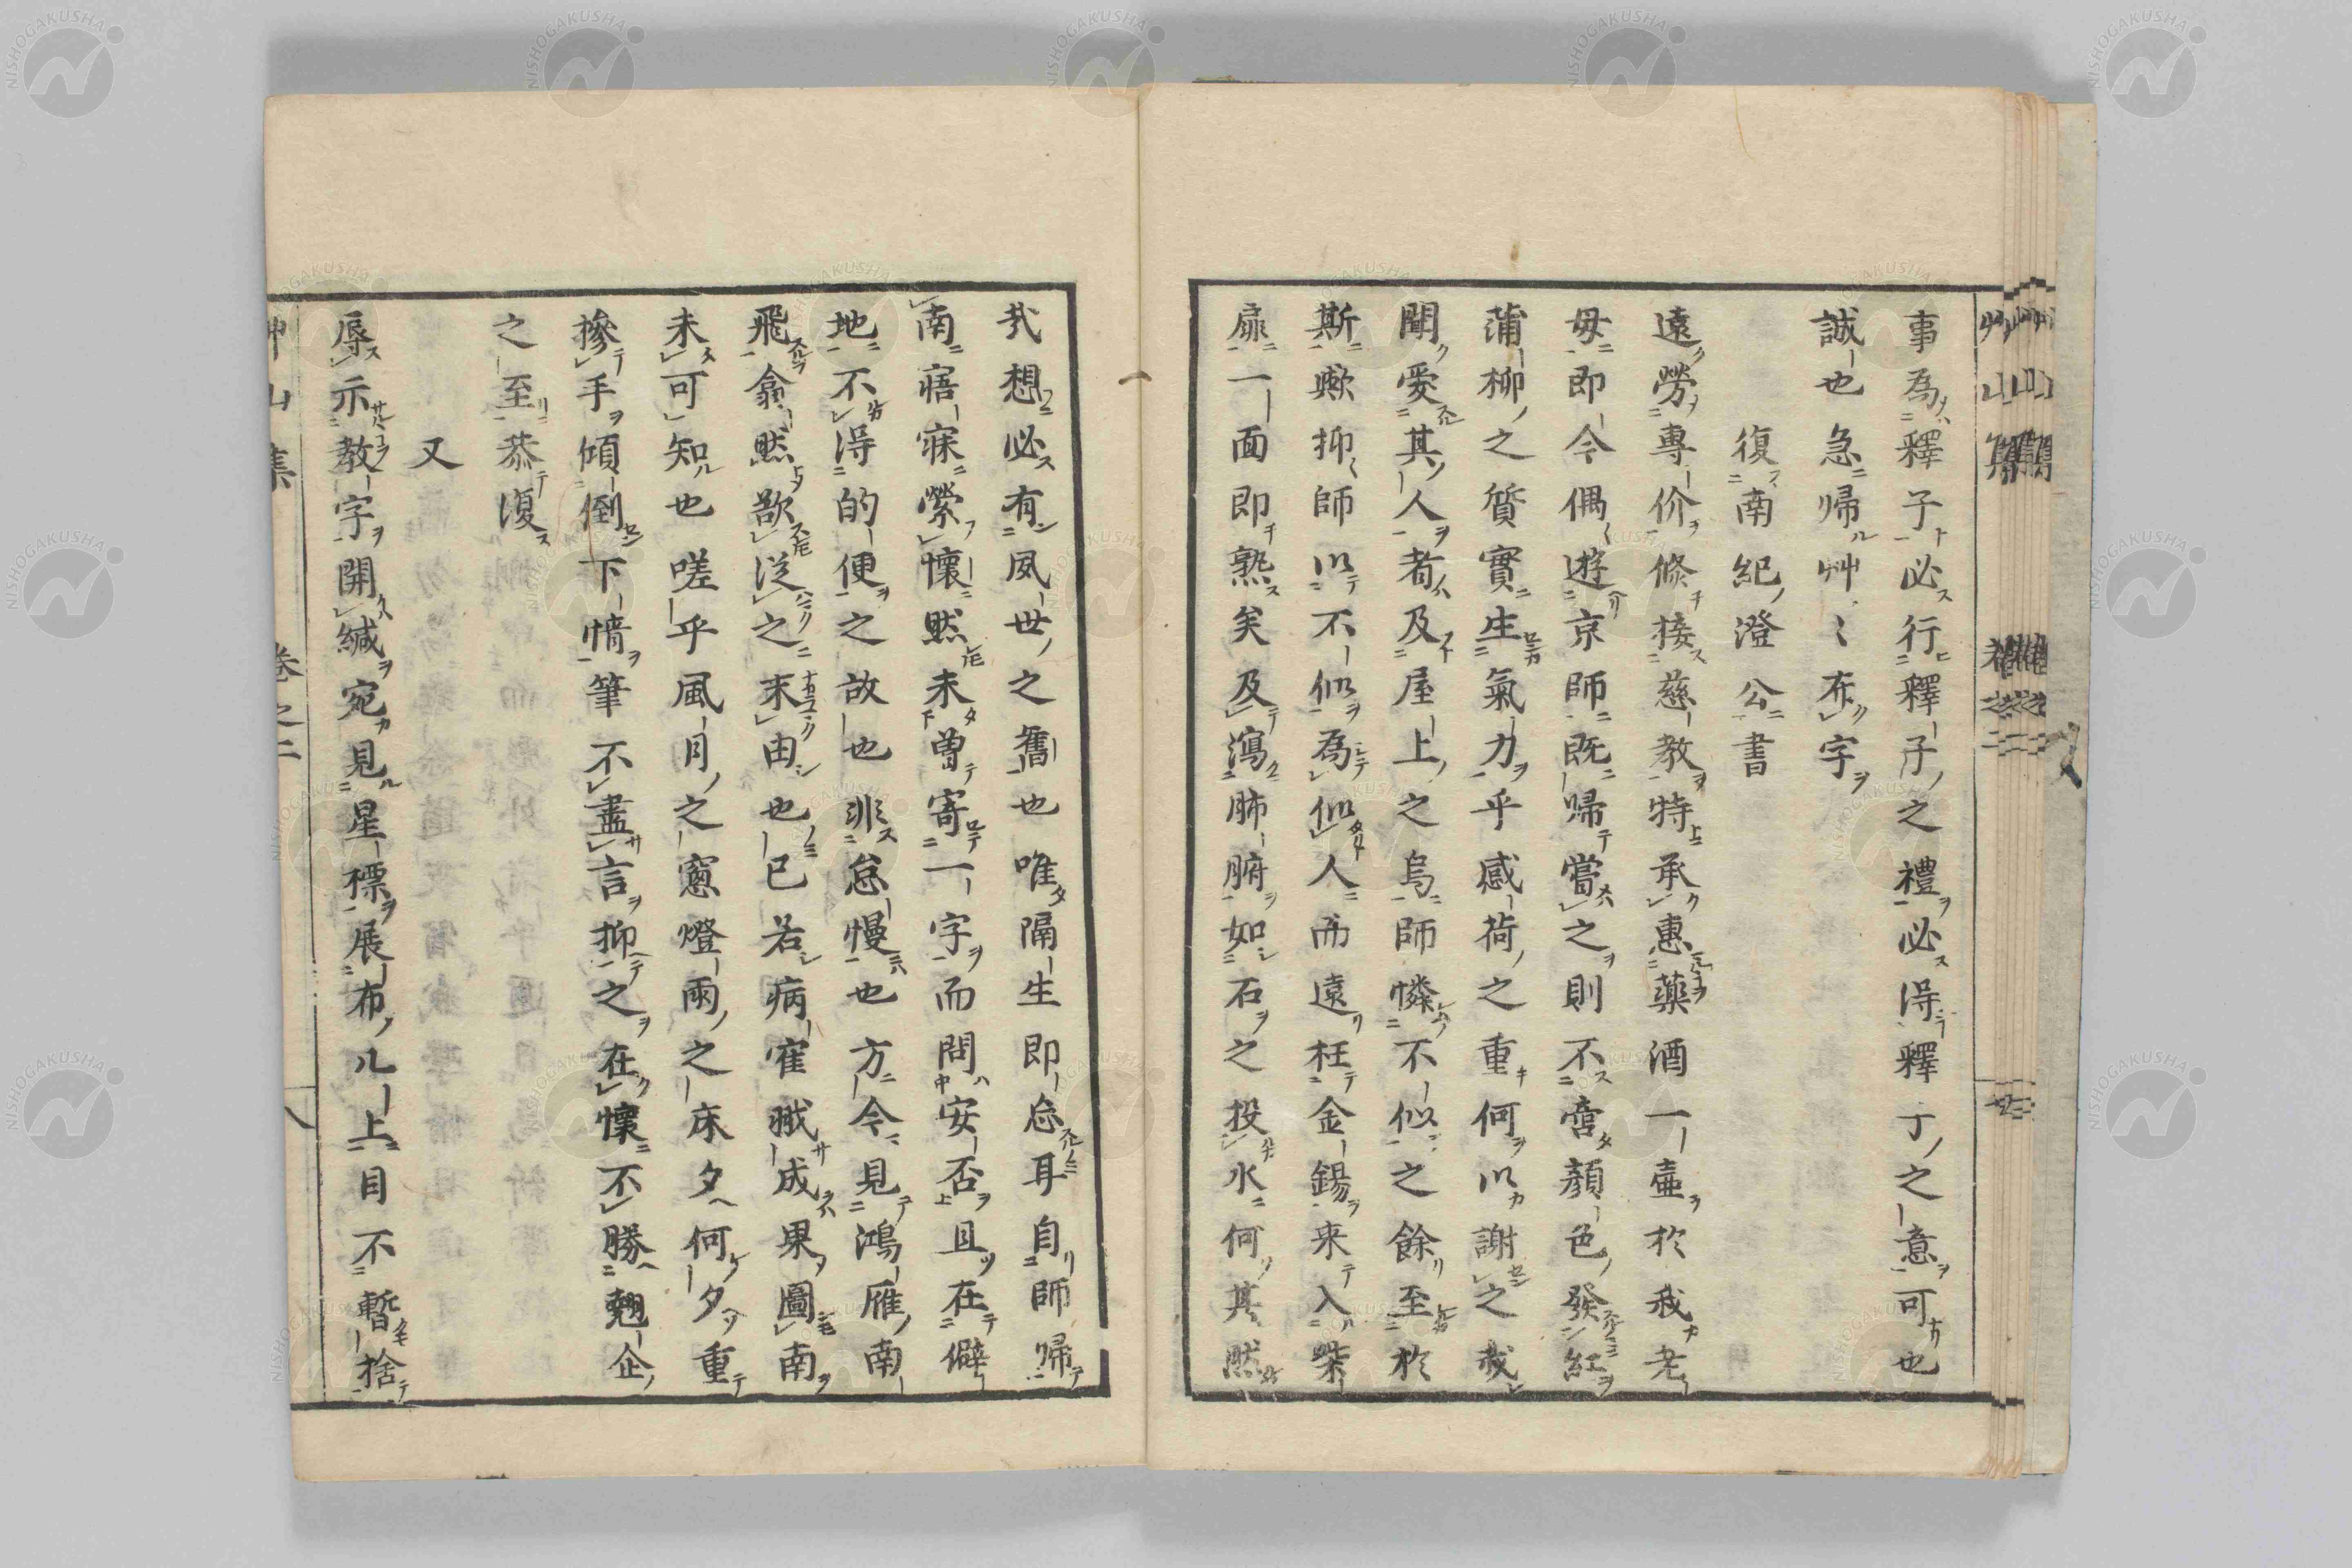 事為釋子必行釋子之禮必得釋子之意可也
誠也急歸艸〻布字
復南紀澄公書
遠勞專价修接慈教特承惠藥酒一壷於我老
母即今偶遊京師既歸嘗之則不啻顏色發紅
蒲柳之質實生氣力乎感荷之重何以謝之哉
聞愛其人者及屋上之烏師憐不似之餘至於
斯歟抑師以不似為似人而遠枉金錫来入柴
扉一面即熟矣及瀉肺腑如石之投水何其然
哉想必有夙世之舊也唯隔生即忘耳自師歸
南寤寐縈懷然未曽寄一字而問安否且在僻
地不得的便之故也非怠慢也方今見鴻雁南
飛翕然欲從之末由也已若病寉臓成果圖南
未可知也嗟乎風月之窻燈雨之床夕何夕重
摻手傾倒下情筆不盡言抑之在懷不勝翹企
之至恭復
又
辱示教字開緘宛見星標展布几上目不暫捨
艸山集
卷之二
八